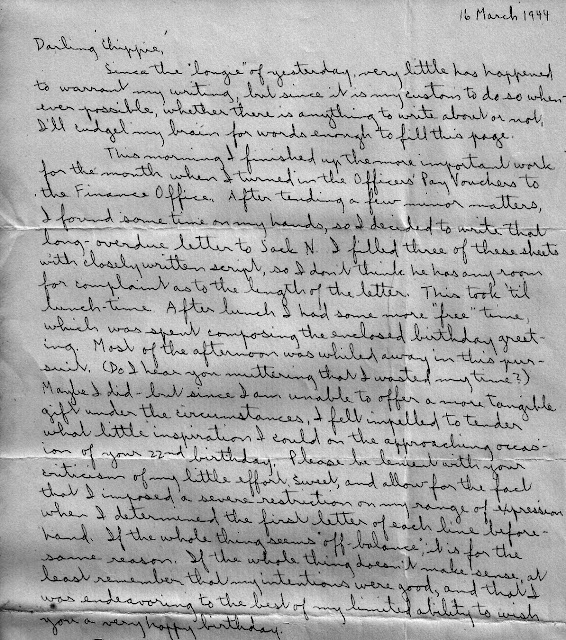 16 March 1944
Darling Chippie,
Since the "longie" of yesterday, very little has happened
to warrant my writing, but since it is my custom to do so when-
ever possible, whether there is anything to write about or not,
I'll cudgel my brains for words enough to fill this page.
This morning I finished up the more important work
for the month when I turned in the Officers' Pay Vouchers to
the Finance Office. After tending a few minor matters,
I found some time on my hands, so I decided to write that
long-overdue letter to Jack N. I filled three of these sheets
with closely written script, so I don't think he has any room
for complaint as to the length of the letter. This took 'til
lunch-time. After lunch I had some more "free" time,
which was spent composing the enclosed birthday greet-
ing. Most of the afternoon was whiled away in this pur-
suit. (Do I hear you muttering that I wasted my time?)
Maybe I did - but since I am unable to offer a more tangible
gift under the circumstances, I felt impelled to tender
what little inspiration I could on the approaching occas-
ion of your 22nd birthday. Please be lenient with your
criticism of my little effort, Sweet, and allow for the fact
that I imposed a severe restriction on my range of expression
when I determined the first letter of each line before-
hand. If the whole thing seems "off-balance", it is for the
same reason. If the whole thing doesn't make sense, at
least remember that my intentions were good, and that I
was endeavoring to the best of my limited ability to wish
you a very happy birthday.